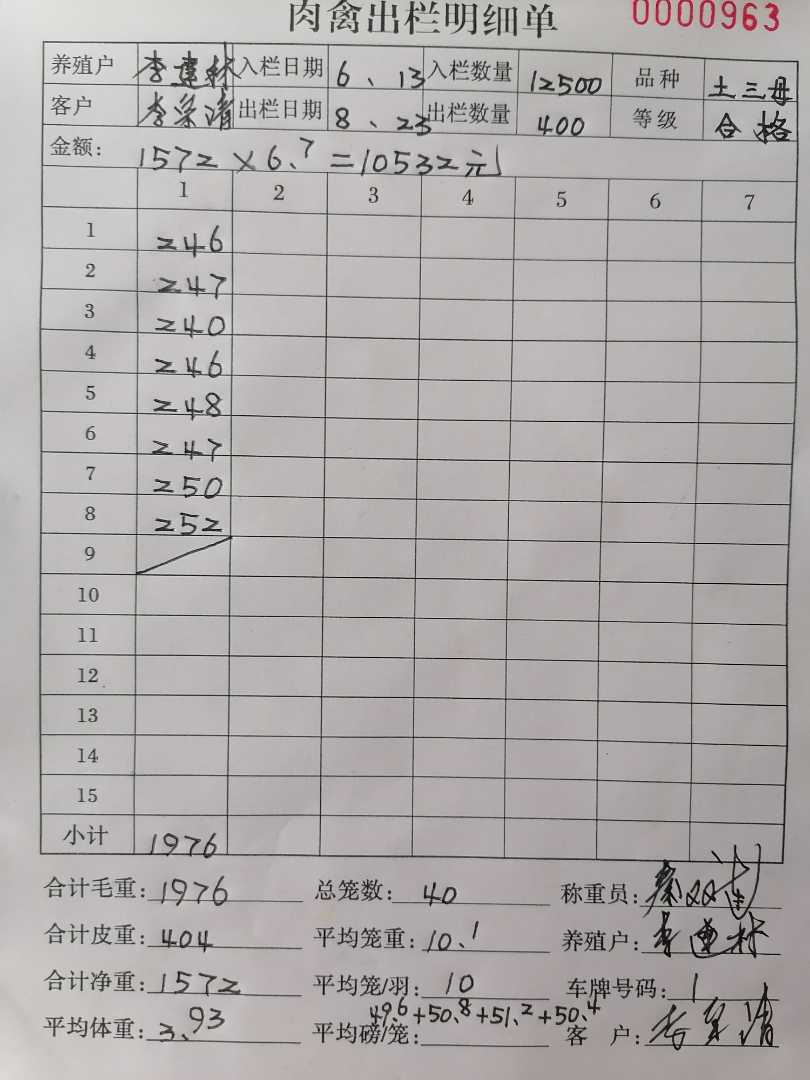 肉禽出栏明细单 0000963
养殖户 李建林 入栏日期 6、13 入栏数量 12500 品种 土三母
客户 李荣清 出栏日期 8、23 出栏数量 400 等级 合格
金额: 1572×6.7=10532元
1 2 3 4 5 6 7
1 246
2 247
3 240
4 246
5 248
6 247
7 250
8 252
9
10
11
12
13
14
15
小计 1976
合计毛重: 1976 总笼数: 40 称重员:
合计皮重: 404 平均笼重: 10.1 养殖户: 李建林
合计净重: 1572 平均笼/羽: 10 车牌号码: 1
平均体重: 3.93 平均磅/笼: 49.6+50.8+51.2+50.4 客户: 李荣清